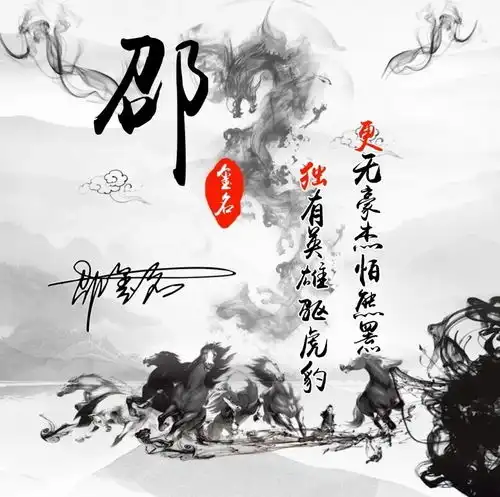 邵
金名
邵金名
独有英雄驱虎豹
更无豪杰怕熊罴